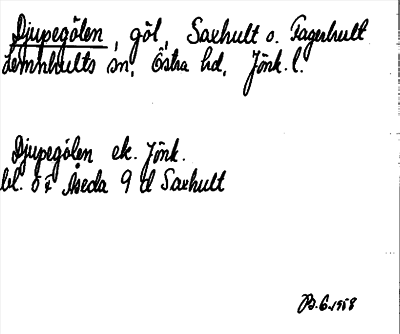 Djupegölen, göl, Saxhult o. Fagerhult
Lemnhults sn, Östra hd, Jönk. l.
Djupegölen ek. Jönk.
bl. 5 F Åseda 9 d Saxhult
B.G. 1958